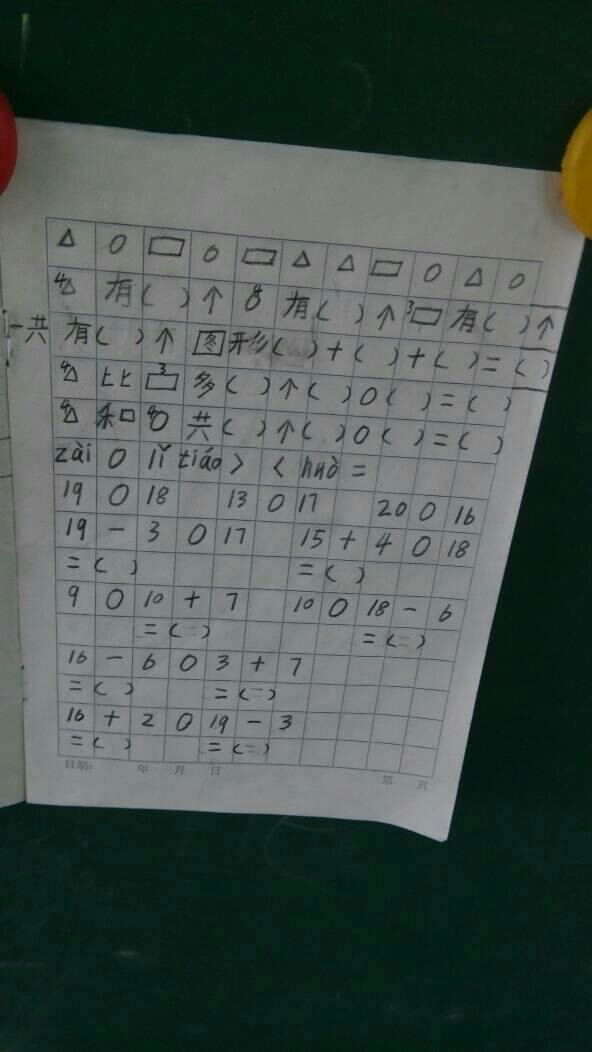 △ ○ ▭ ○ ▭ △ △ ▭ ○ △ ○
4△ 有( )个 4○ 有( )个 3▭ 有( )个
一共有( )个 图形( )+( )+( )=( )
4△ 比 3▭ 多( )个( )○( )=( )
4△ 和 4○ 共( )个( )○( )=( )
zài ○ lǐ tiáo > < huò =
19 ○ 18 13 ○ 17 20 ○ 16
19 - 3 ○ 17 15 + 4 ○ 18
=( ) =( )
9 ○ 10 + 7 10 ○ 18 - 6
=( ) =( )
16 - 6 ○ 3 + 7
=( ) =( )
16 + 2 ○ 19 - 3
=( ) =( )
日期: 年 月 日 第 页